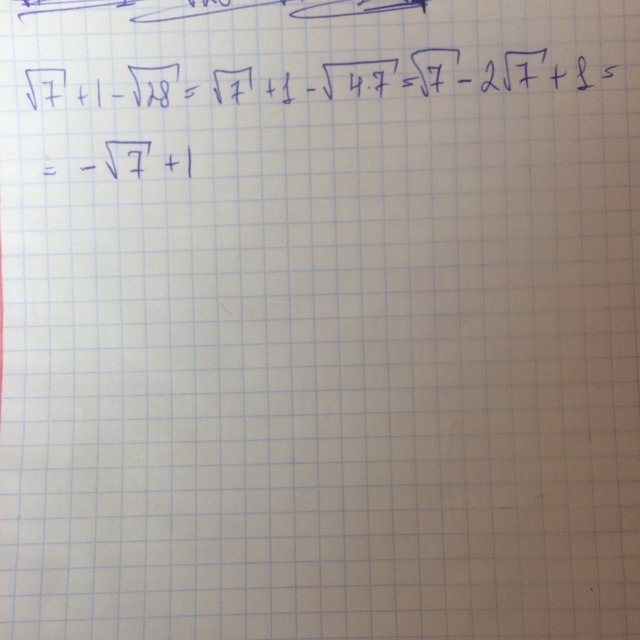 √7 + 1 - √28 = √7 + 1 - √4·7 = √7 - 2√7 + 1 =
= -√7 + 1